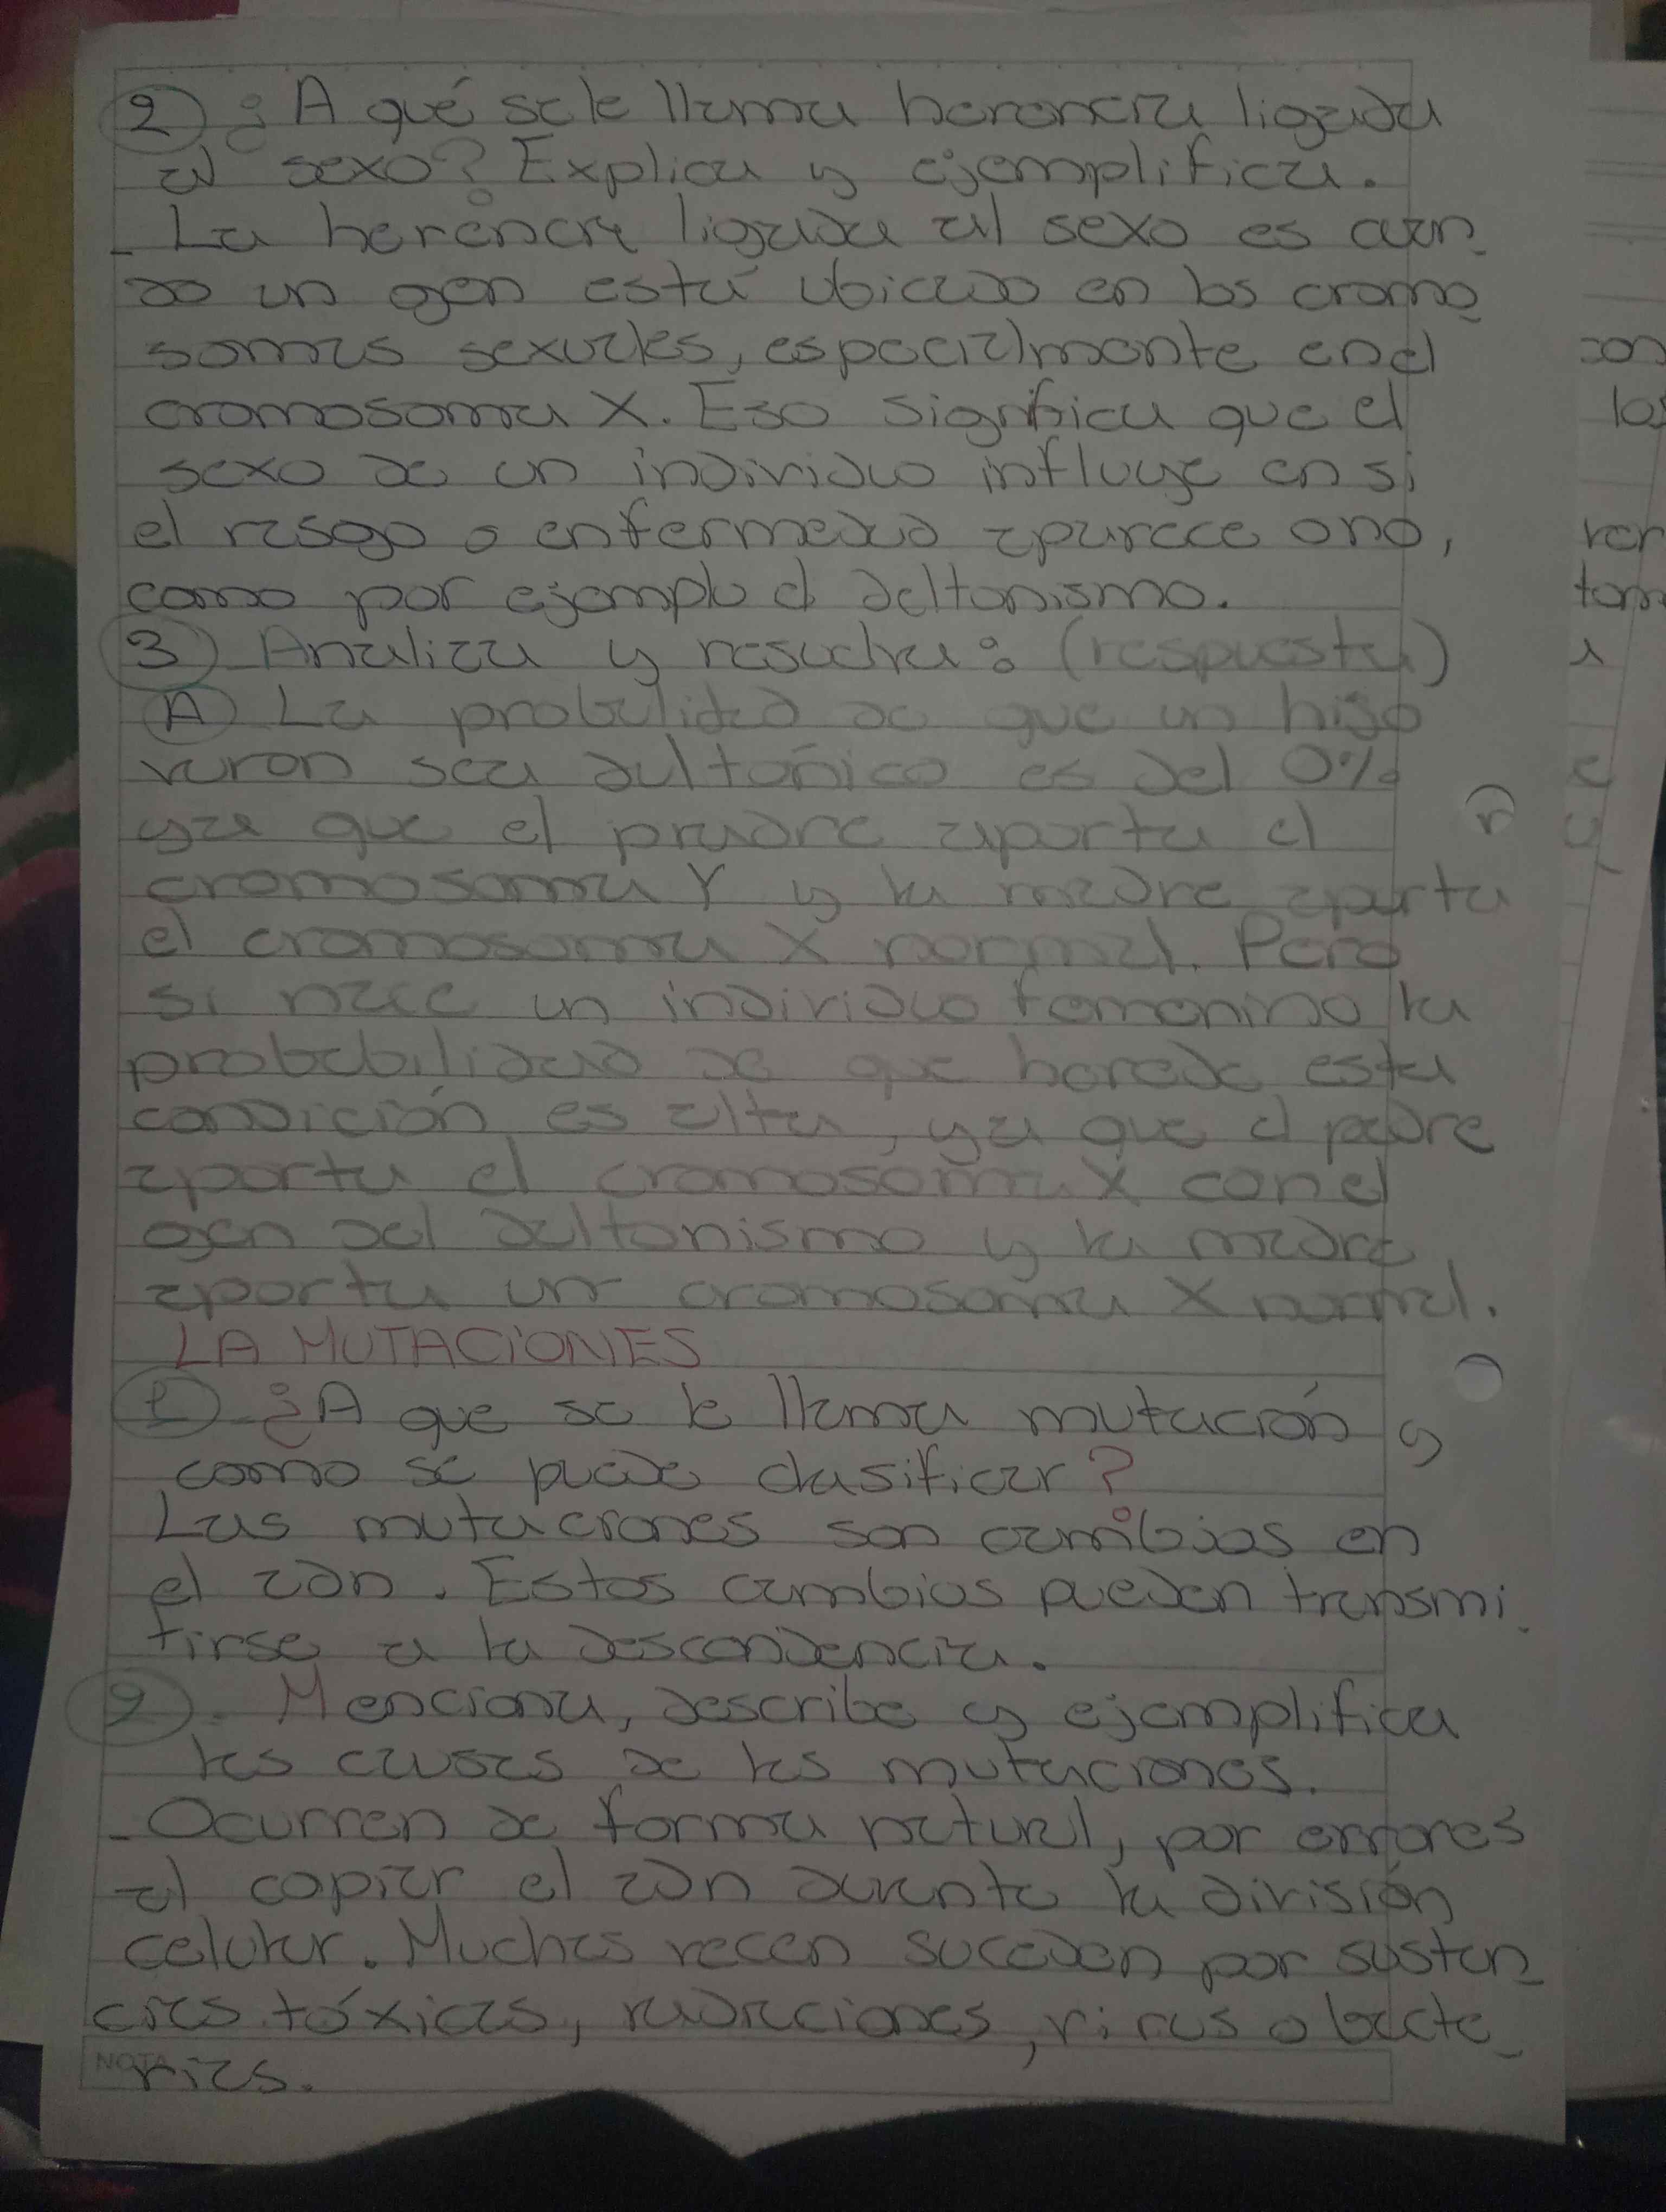 2) ¿A qué se le llama herencia ligada
al sexo? Explica y ejemplifica.
- La herencia ligada al sexo es cuan-
do un gen está ubicado en los cromo-
somas sexuales, especialmente en el
cromosoma X. Eso significa que el
sexo de un individuo influye en si
el rasgo o enfermedad aparece o no,
como por ejemplo el daltonismo.
3) Analiza y resuelva: (respuesta)
A) La probalidad de que un hijo
varon sea daltónico es del 0%
ya que el pradre aporta el
cromosoma Y y la madre aparta
el cromosoma X normal. Pero
si nace un individuo femenino la
probabilidad de que herede esta
condición es alta, ya que el padre
aporta el cromosoma X con el
gen del daltonismo y la madre
aporta un cromosoma X normal.
LA MUTACIONES
1) ¿A que se le llama mutación y
como se puede clasificar?
Las mutaciones son cambios en
el adn. Estos cambios pueden transmi-
tirse a la descendencia.
2). Menciona, describe y ejemplifica
las causas de las mutaciones.
- Ocurren de forma natural, por errores
al copiar el adn durante la división
celular. Muchas vecen suceden por sustan-
cias tóxicas, radiaciones, virus o bacte-
NOTA
rias.
con
los
ver
tom